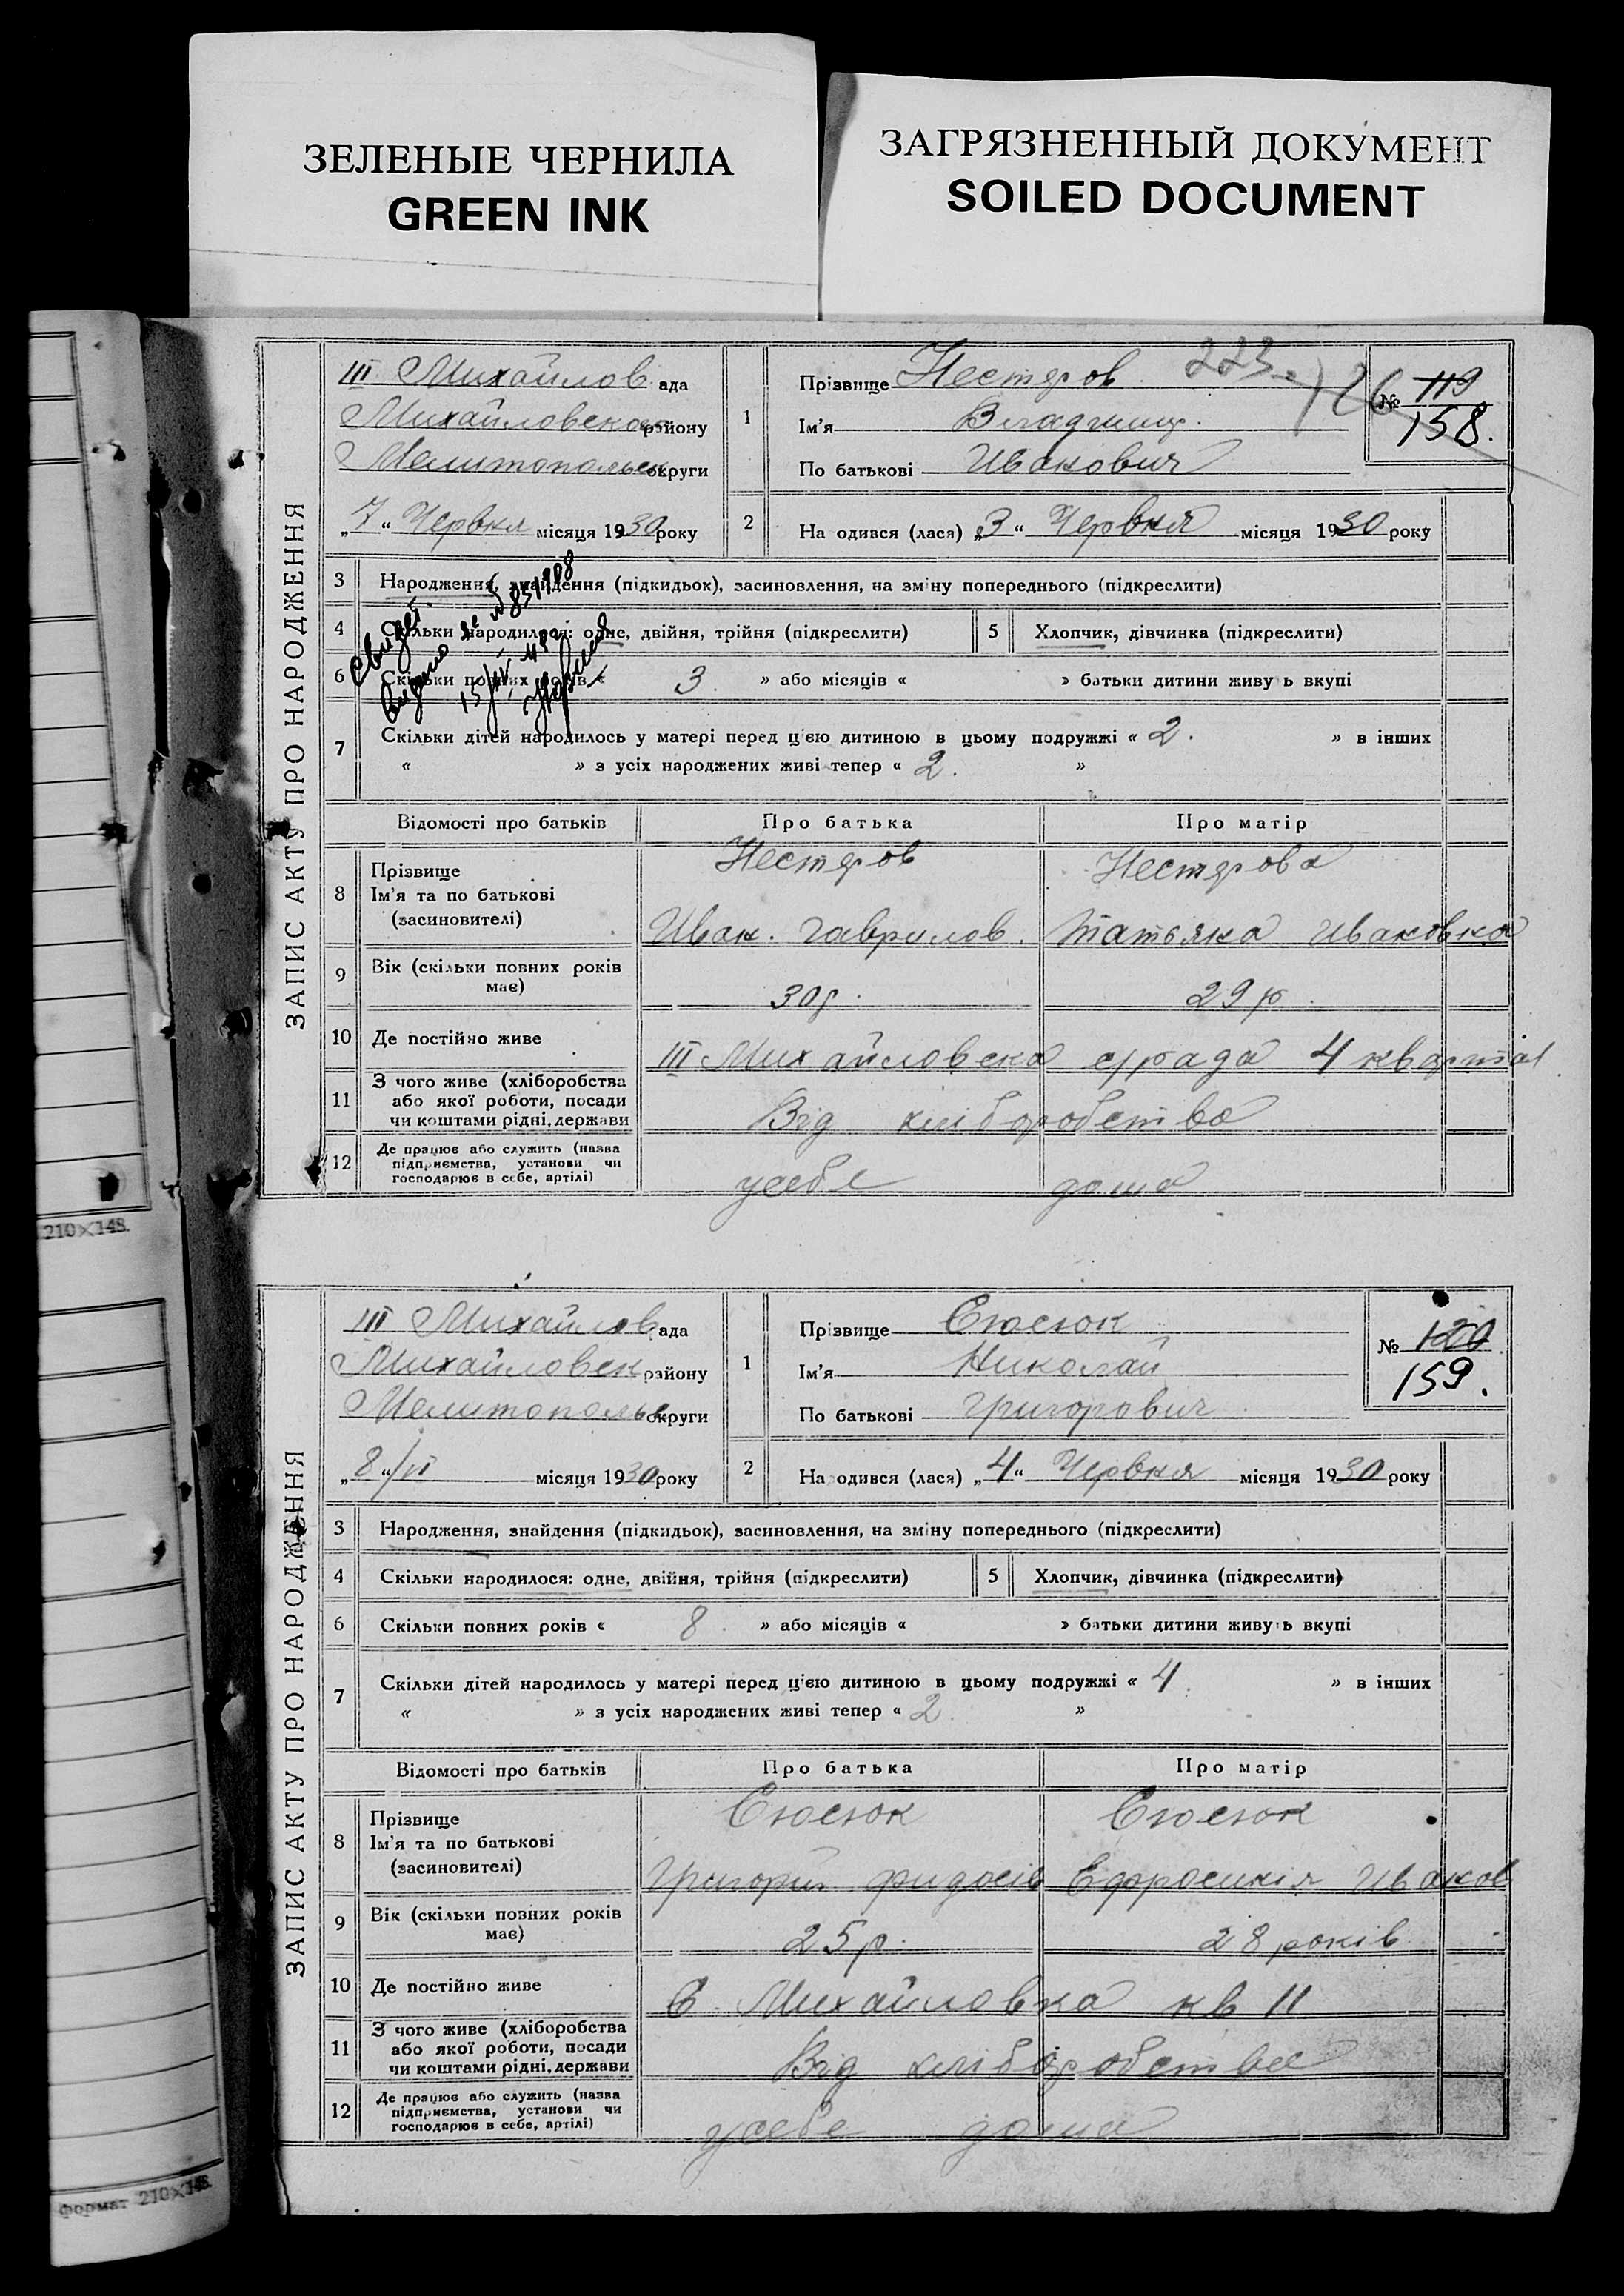 ЗЕЛЕНЫЕ ЧЕРНИЛА
GREEN INK
ЗАГРЯЗНЕННЫЙ ДОКУМЕНТ
SOILED DOCUMENT
ЗАПИС АКТУ ПРО НАРОДЖЕННЯ
III Михайлов ада
Михайловского району
Мелитопольск округи
„7“ Червня місяця 1930 року
1
Прізвище Нестеров
223
126
№ 119
158.
Ім'я Владимир.
По батькові Иванович
2 На одився (лася) „3“ Червня місяця 1930 року
3 Народження, знайдення (підкидьок), засиновлення, на зміну попереднього (підкреслити)
4 Скільки народилося: одне, двійня, трійня (підкреслити) 5 Хлопчик, дівчинка (підкреслити)
6 Скільки повних років « 3 » або місяців « » батьки дитини живу ь вкупі
7 Скільки дітей народилось у матері перед цією дитиною в цьому подружжі « 2. » в інших
« » з усіх народжених живі тепер « 2. »
Свидет.
выдано
Відомості про батьків Про батька Про матір
8 Прізвище Нестеров Нестерова
Ім'я та по батькові
(засиновителі) Иван. Гаврилов. Татьяна Ивановна
9 Вік (скільки повних років
має) 30р. 29 р.
10 Де постійно живе III Михайловска с/рада 4 квартал
11 З чого живе (хліборобства
або якої роботи, посади
чи коштами рідні, держави Від хліборобства
12 Де працює або служить (назва
підприємства, установи чи
господарює в себе, артілі) усебе дома
210×148.
ЗАПИС АКТУ ПРО НАРОДЖЕННЯ
III Михайлов ада
Михайловск району
Мелитопольс округи
„8“/VI місяця 1930 року
1
Прізвище Сюсюк
№ 120
159.
Ім'я Николай
По батькові Григорович
2 На одився (лася) „4“ Червня місяця 1930 року
3 Народження, знайдення (підкидьок), засиновлення, на зміну попереднього (підкреслити)
4 Скільки народилося: одне, двійня, трійня (підкреслити) 5 Хлопчик, дівчинка (підкреслити)
6 Скільки повних років « 8 » або місяців « » батьки дитини живуть вкупі
7 Скільки дітей народилось у матері перед цією дитиною в цьому подружжі « 4. » в інших
« » з усіх народжених живі тепер « 2. »
Відомості про батьків Про батька Про матір
8 Прізвище Сюсюк Сюсюк
Ім'я та по батькові
(засиновителі) Григорий Фидосів Ефросинія Иванов
9 Вік (скільки повних років
має) 25 р. 28 років
10 Де постійно живе С. Михайловка кв 11
11 З чого живе (хліборобства
або якої роботи, посади
чи коштами рідні, держави Від хліборобства
12 Де працює або служить (назва
підприємства, установи чи
господарює в себе, артілі) усебе дома
формат 210×148.